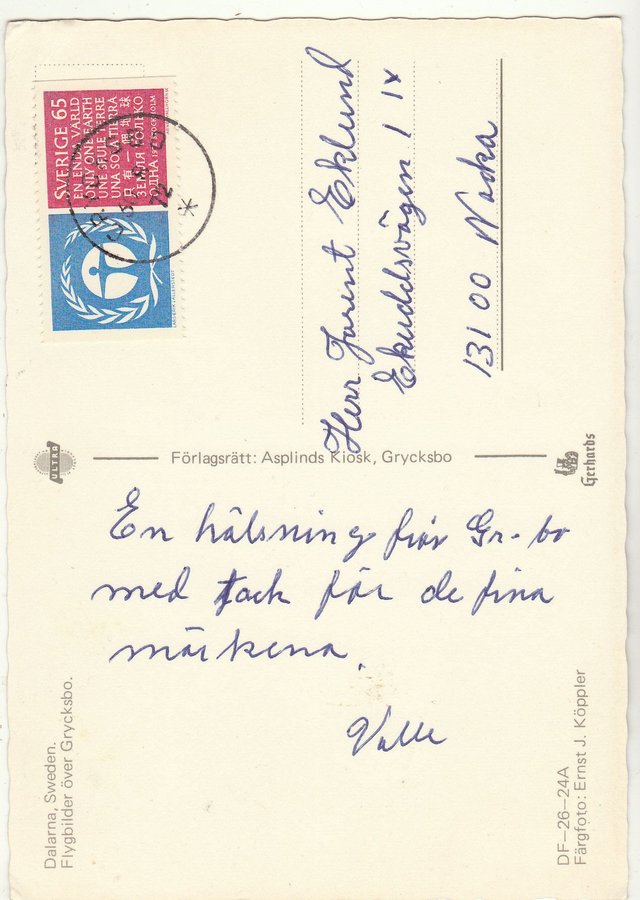 SVERIGE 65
EN ENDA VÄRLD
ONLY ONE EARTH
UNE SEULE TERRE
UNA SOLA TIERRA
只有一個地球
ЗЕМЛЯ ТОЛЬКО
ОДНА
STOCKHOLM
72
Herr Eklund
Ekuddsvägen 1 IV
131 00 Nacka
ULTRA
Förlagsrätt: Asplinds Kiosk, Grycksbo
Gerhards
En hälsning från Gr-bo
med tack för de fina
märkena.
Valle
Dalarna, Sweden.
Flygbilder över Grycksbo.
DF-26-24A
Färgfoto: Ernst J. Köppler